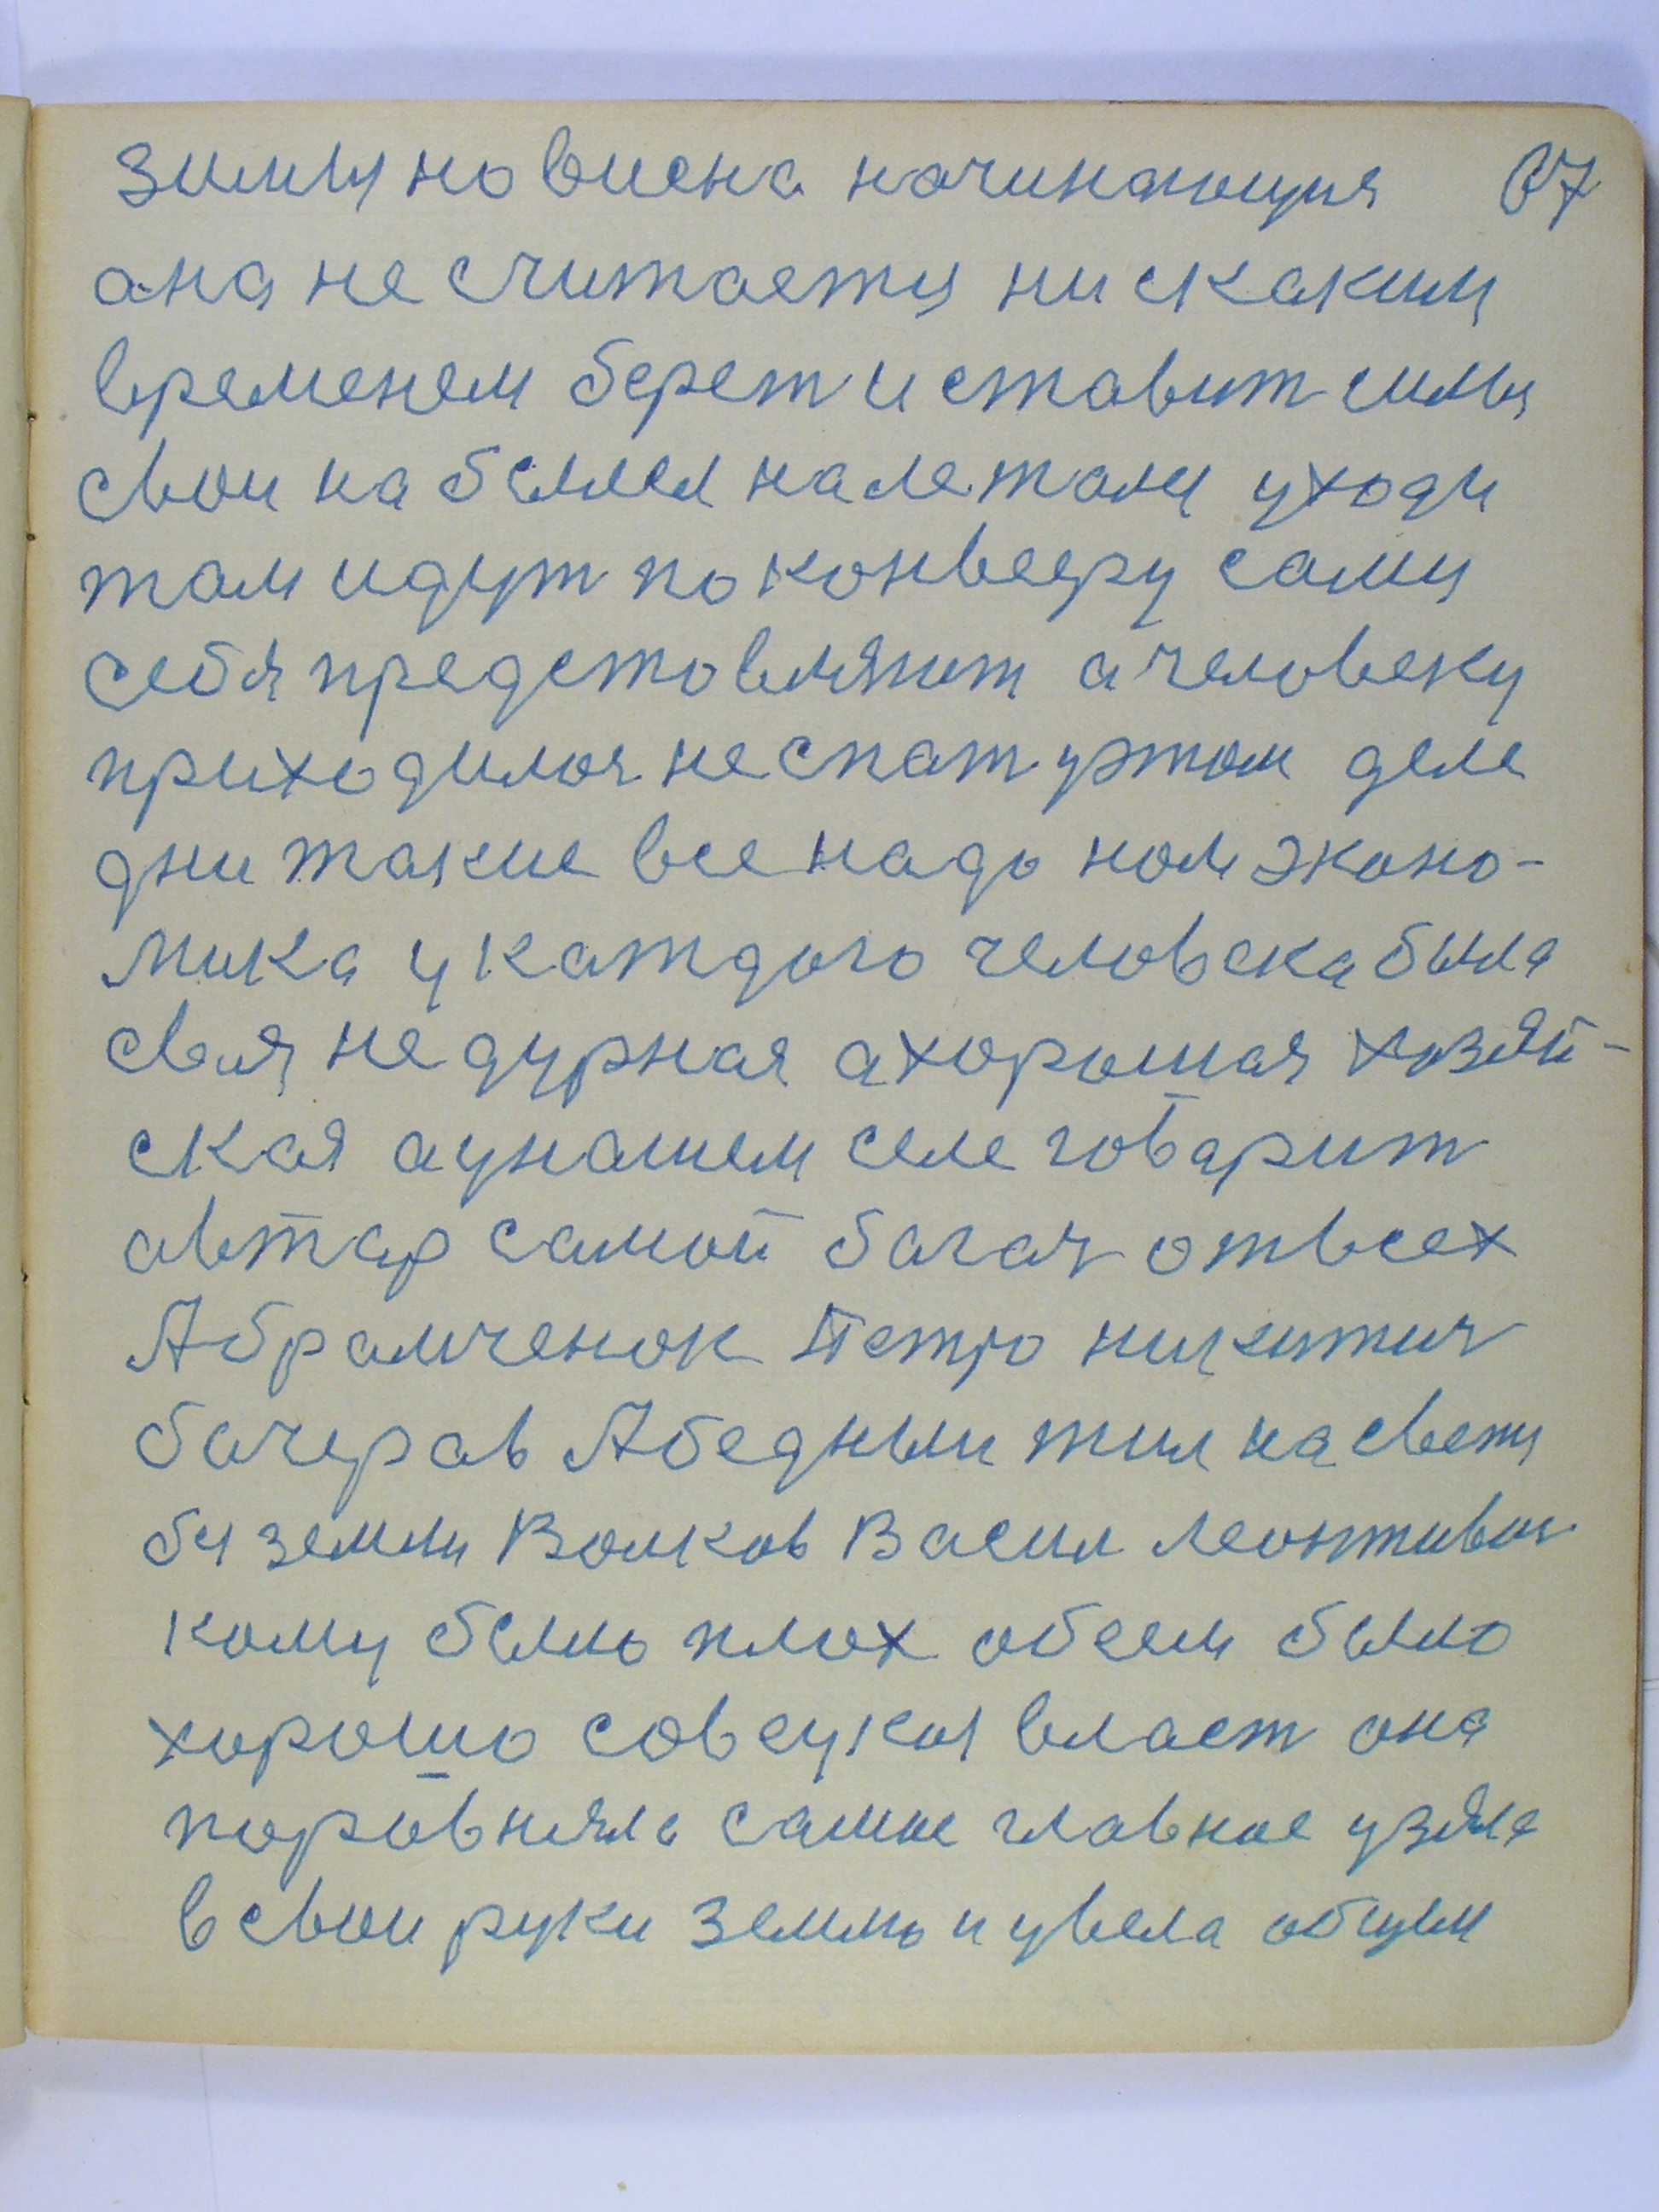 зимы но висна начинающия 67
ана не считаеты ни скакими
временем берет и ставит силы
свои на белом налетали уходи
там идут по конвееру самы
себя представляют а человеку
приходилоя не спат уэтом деле
дни такие все надо ном эконо-
мика у каждого человека была
своя не дурная а хорошая хозяй-
ская а унашем селе говарит
автар самой багач отвсех
Абрамченок Петро никитич
бачеров А бедным жил на свети
бы земли Волков Васил леонтивич
кому было плох обеем было
хорошо совецкая власт она
поровняла самое главное узяла
в свои руки землю и увела общим